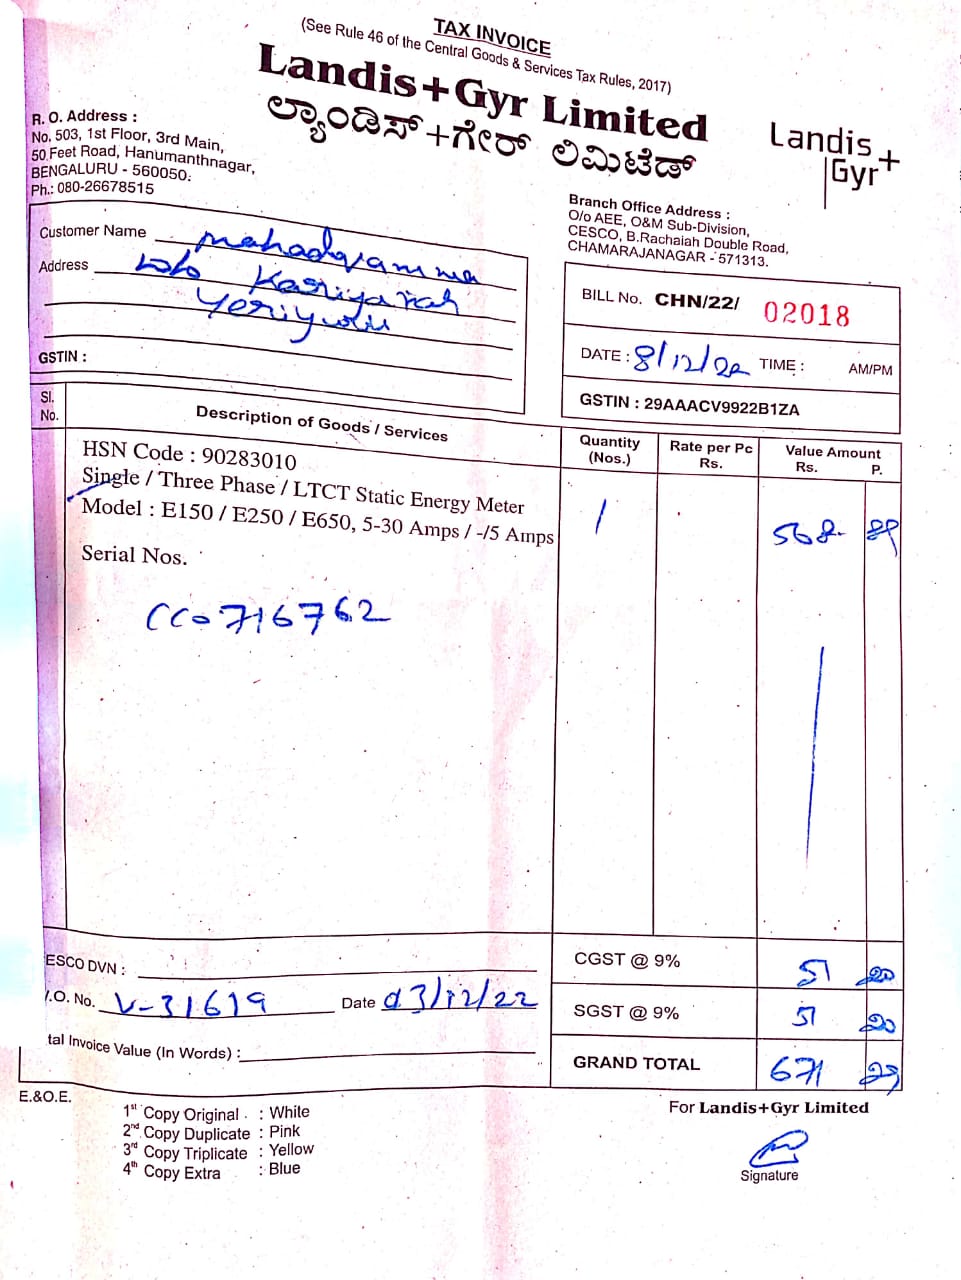 TAX INVOICE
(See Rule 46 of the Central Goods & Services Tax Rules, 2017)
Landis+Gyr Limited
ಲ್ಯಾಂಡಿಸ್+ಗೇರ್ ಲಿಮಿಟೆಡ್
Landis+
Gyr
R. O. Address :
No. 503, 1st Floor, 3rd Main,
50 Feet Road, Hanumanthnagar,
BENGALURU - 560050.
Ph.: 080-26678515
Branch Office Address :
O/o AEE, O&M Sub-Division,
CESCO, B.Rachaiah Double Road,
CHAMARAJANAGAR - 571313.
Customer Name Mahadevamma
Address w/o Kariyaiah
Yeriyuru
GSTIN :
BILL No. CHN/22/ 02018
DATE : 8/12/22 TIME : AM/PM
GSTIN : 29AAACV9922B1ZA
Sl. No. Description of Goods / Services Quantity (Nos.) Rate per Pc Rs. Value Amount Rs. P.
HSN Code : 90283010
Single / Three Phase / LTCT Static Energy Meter
Model : E150 / E250 / E650, 5-30 Amps / -/5 Amps 1 568- 89
Serial Nos.
CC0716762
ESCO DVN :
CGST @ 9% 51 20
.O. No. V-31619 Date 03/12/22
SGST @ 9% 51 20
tal Invoice Value (In Words) :
GRAND TOTAL 671 29
E.&O.E.
1st Copy Original : White
2nd Copy Duplicate : Pink
3rd Copy Triplicate : Yellow
4th Copy Extra : Blue
For Landis+Gyr Limited
Signature